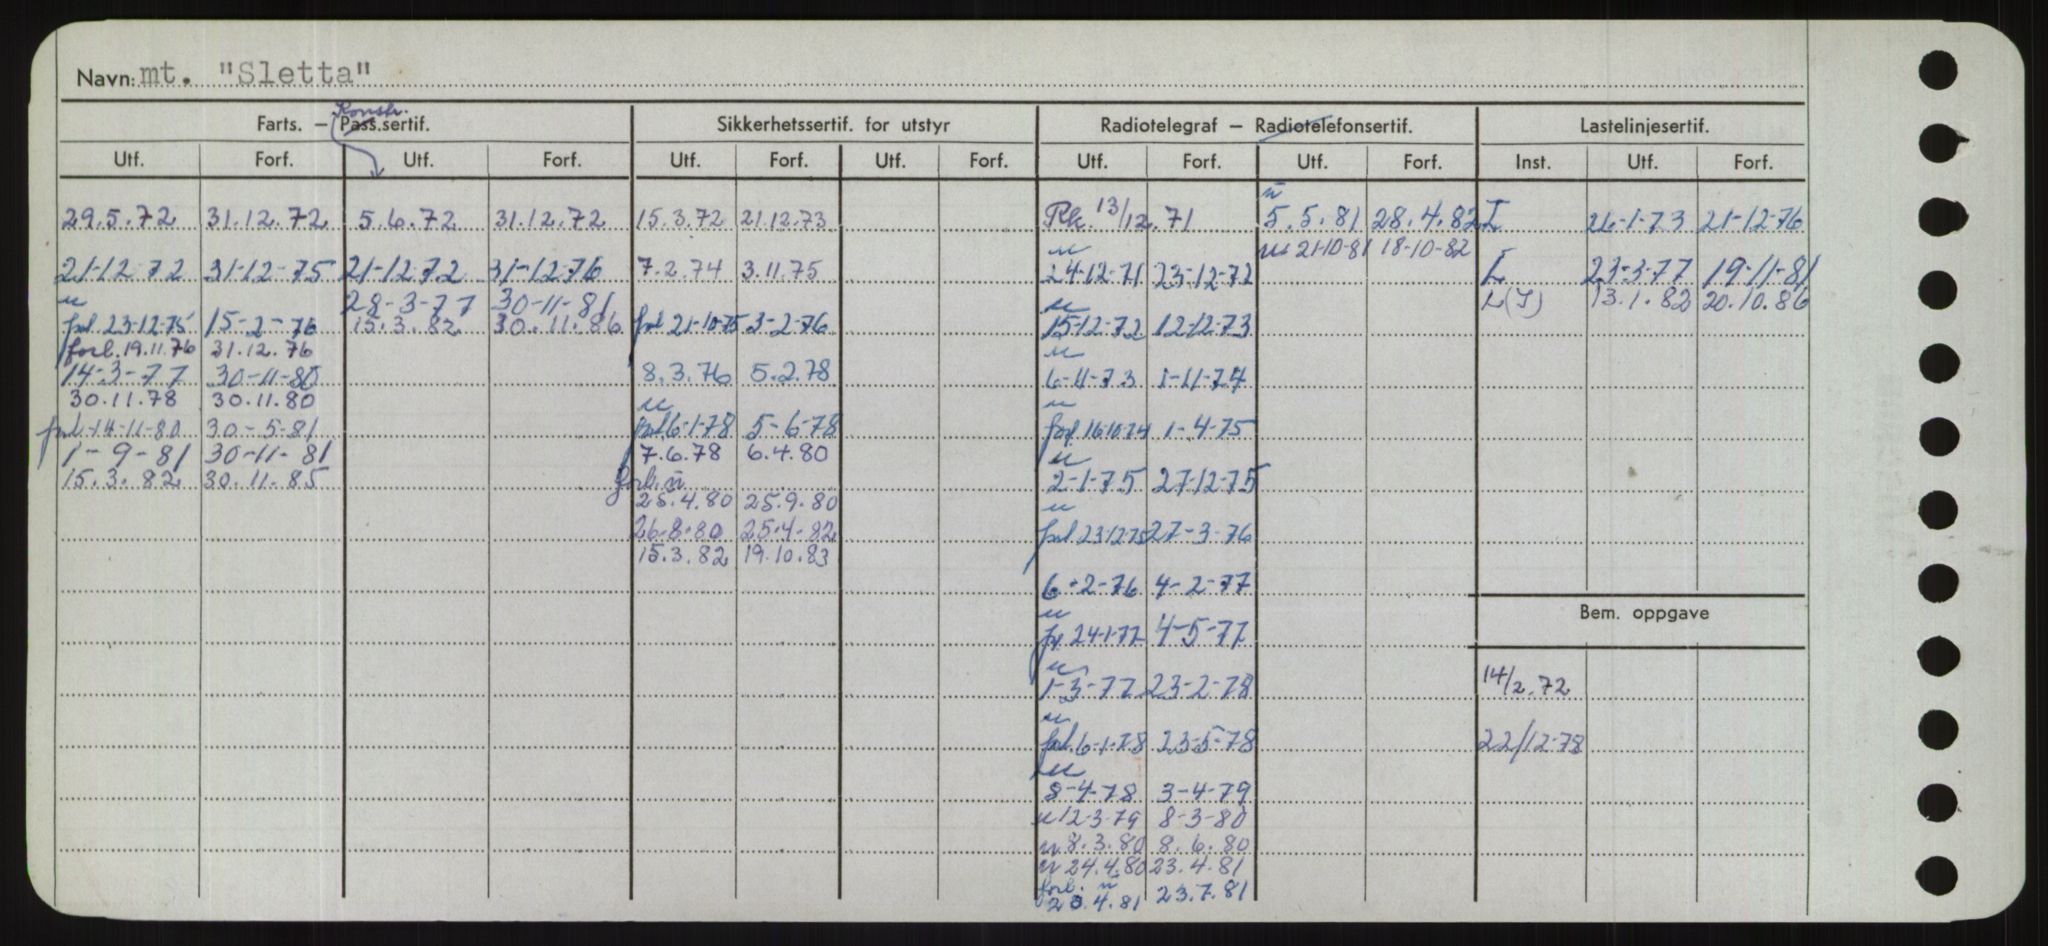 Navn: mt. "Sletta"
Konstr.
Farts. — Pass.sertif. Sikkerhetssertif. for utstyr Radiotelegraf — Radiotelefonsertif. Lastelinjesertif.
Utf. Forf. Utf. Forf. Utf. Forf. Utf. Forf. Utf. Forf. Utf. Forf. Inst. Utf. Forf.
29.5.72 31.12.72 5.6.72 31.12.72 15.3.72 21.12.73 Rk. 13/12.71 u 5.5.81 28.4.82 L 26-1-73 21-12-76
u 21-10-81 18-10-82
21-12-72 31-12-75 21-12-72 31-12-76 7.2.74 3.11.75 u 24-12-71 23-12-72 L 23-3-77 19-11-81
28-3-77 30-11-81 L(I) 13.1.82 20.10.86
u forl 23-12-75 15-2-76 15.3.82 30.11.86 forl 21-10-75 3-2-76 u 15-12-72 12-12-73
forl. 19.11.76 31.12.76
14-3-77 30-11-80 8.3.76 5.2.78 u 6-11-73 1-11-74
30.11.78 30.11.80
forl 14-11-80 30-5-81 u forl 6-1-78 5-6-78 u forl 16-10-74 1-4-75
1-9-81 30-11-81 7.6.78 6.4.80
15.3.82 30.11.85 forl. u u 2-1-75 27-12-75
25.4.80 25.9.80
26.8.80 25.4.82 u forl 23-12-75 27-3-76
15.3.82 19.10.83
6-2-76 4-2-77
Bem. oppgave
u fl. 24-1-77 4-5-77
u 1-3-77 23-2-78 14/2.72
u forl. 6-1-78 23-5-78 22/12-78
u 8-4-78 3-4-79
u 12-3-79 8-3-80
u 8.3.80 8.6.80
u 24.4.80 23.4.81
forl. u
23.7.81